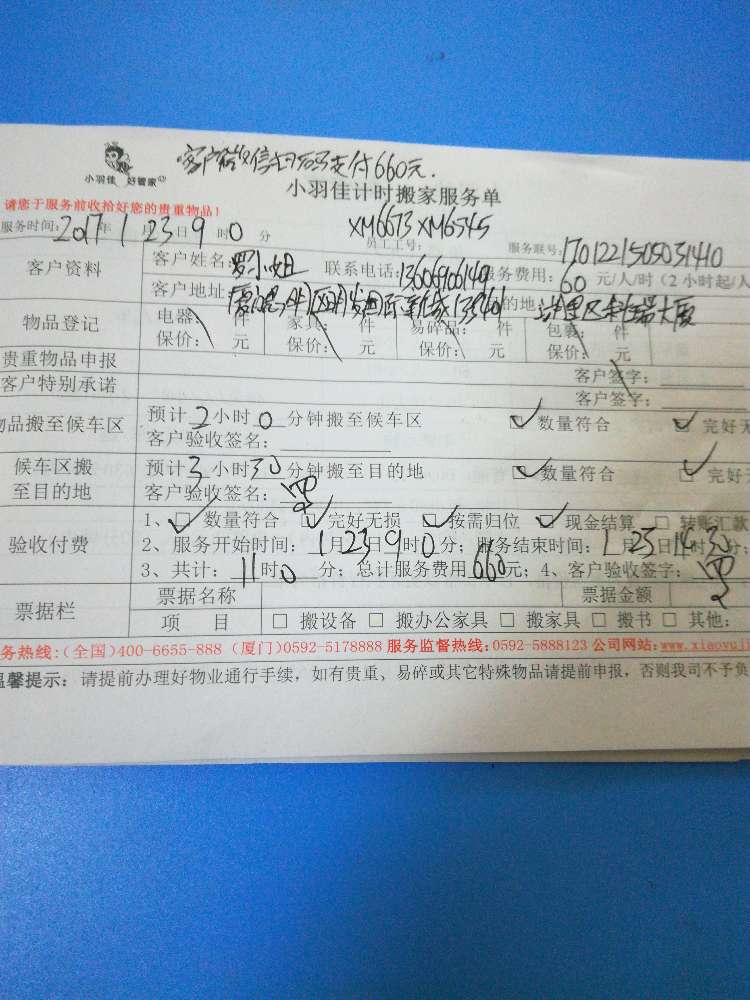 客户微信扫码支付660元.
小羽佳 好管家
小羽佳计时搬家服务单
请您于服务前收拾好您的贵重物品!
XM6673 XM6545
服务时间: 2017年1月23日9时0分 员工工号: 服务联号: 1701221505031410
客户资料 客户姓名: 罗小姐 联系电话: 13606906149 服务费用: 60 元/人/时(2小时起/人
客户地址: 厦 区 国际新城 的地:
物品登记 电器: 件 家具: 件 易碎品: 件 包装: 件
保价: 元 保价: 元 保价: 元 保价: 元
贵重物品申报 客户签字:
客户特别承诺 客户签字:
物品搬至候车区 预计2小时0分钟搬至候车区 ☑ 数量符合 ☑ 完好无
客户验收签名:
候车区搬至目的地 预计3小时30分钟搬至目的地 ☑ 数量符合 ☑ 完好
客户验收签名: 罗
验收付费 1、☑ 数量符合 ☑ 完好无损 ☑ 按需归位 ☑ 现金结算 □ 转账汇款
2、服务开始时间: 1月23日9时0分; 服务结束时间: 1月23日14时30分;
3、共计: 11时0分; 总计服务费用660元; 4、客户验收签字: 罗
票据栏 票据名称 票据金额
项 目 □ 搬设备 □ 搬办公家具 □ 搬家具 □ 搬书 □ 其他:
务热线:(全国)400-6655-888 (厦门)0592-5178888 服务监督热线:0592-5888123 公司网站:www.xiaoyuj
温馨提示: 请提前办理好物业通行手续,如有贵重、易碎或其它特殊物品请提前申报,否则我司不予负